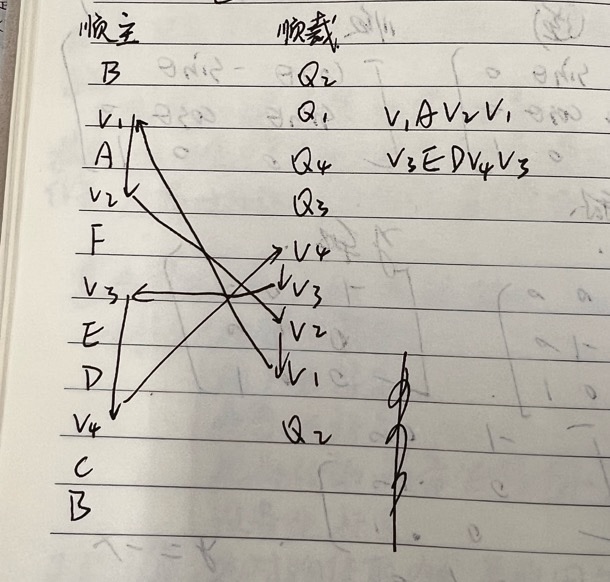 顺主 顺裁
B Q2
V1 Q1 V1AV2V1
A Q4 V3EDV4V3
V2 Q3
F V4
V3 V3
E V2
D V1
V4 Q2
C
B